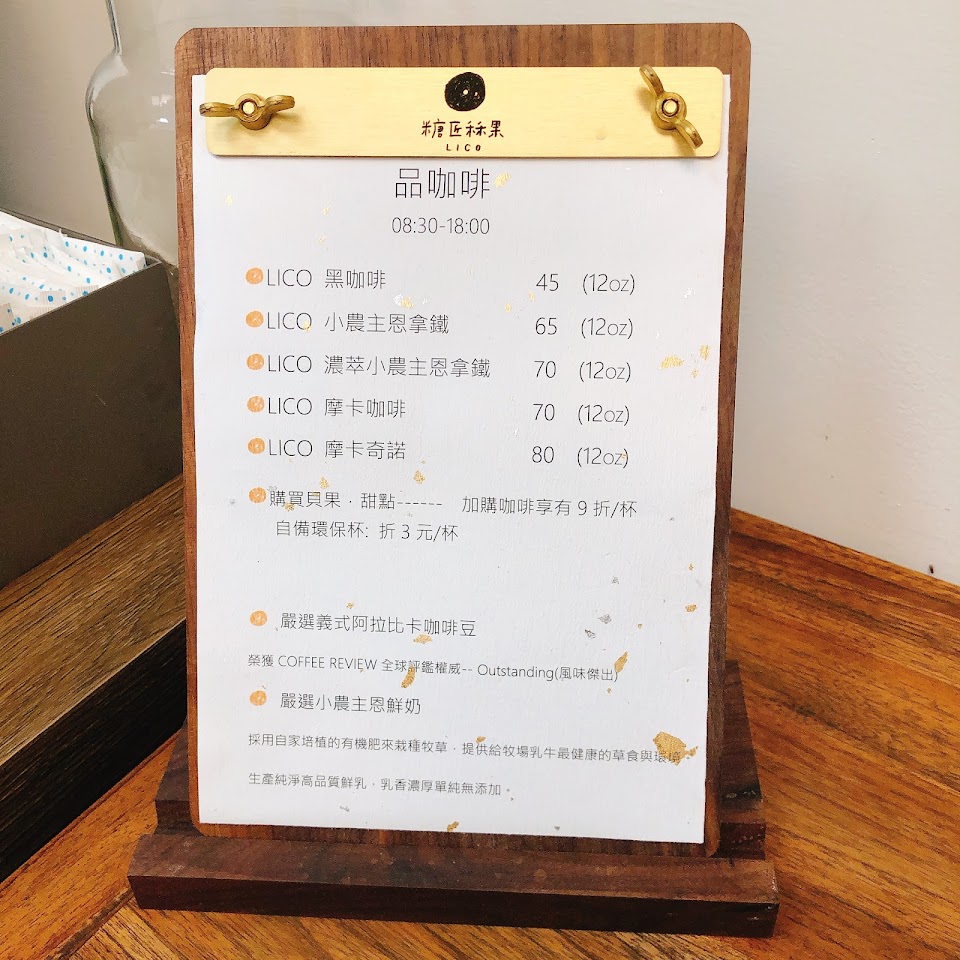 糖匠秝果
LICO
品咖啡
08:30-18:00
LICO 黑咖啡 45 (12oz)
LICO 小農主恩拿鐵 65 (12oz)
LICO 濃萃小農主恩拿鐵 70 (12oz)
LICO 摩卡咖啡 70 (12oz)
LICO 摩卡奇諾 80 (12oz)
購買貝果．甜點------ 加購咖啡享有 9 折/杯
自備環保杯: 折 3 元/杯
嚴選義式阿拉比卡咖啡豆
榮獲 COFFEE REVIEW 全球評鑑權威-- Outstanding(風味傑出)
嚴選小農主恩鮮奶
採用自家培植的有機肥來栽種牧草，提供給牧場乳牛最健康的草食與環境
生產純淨高品質鮮乳，乳香濃厚單純無添加。